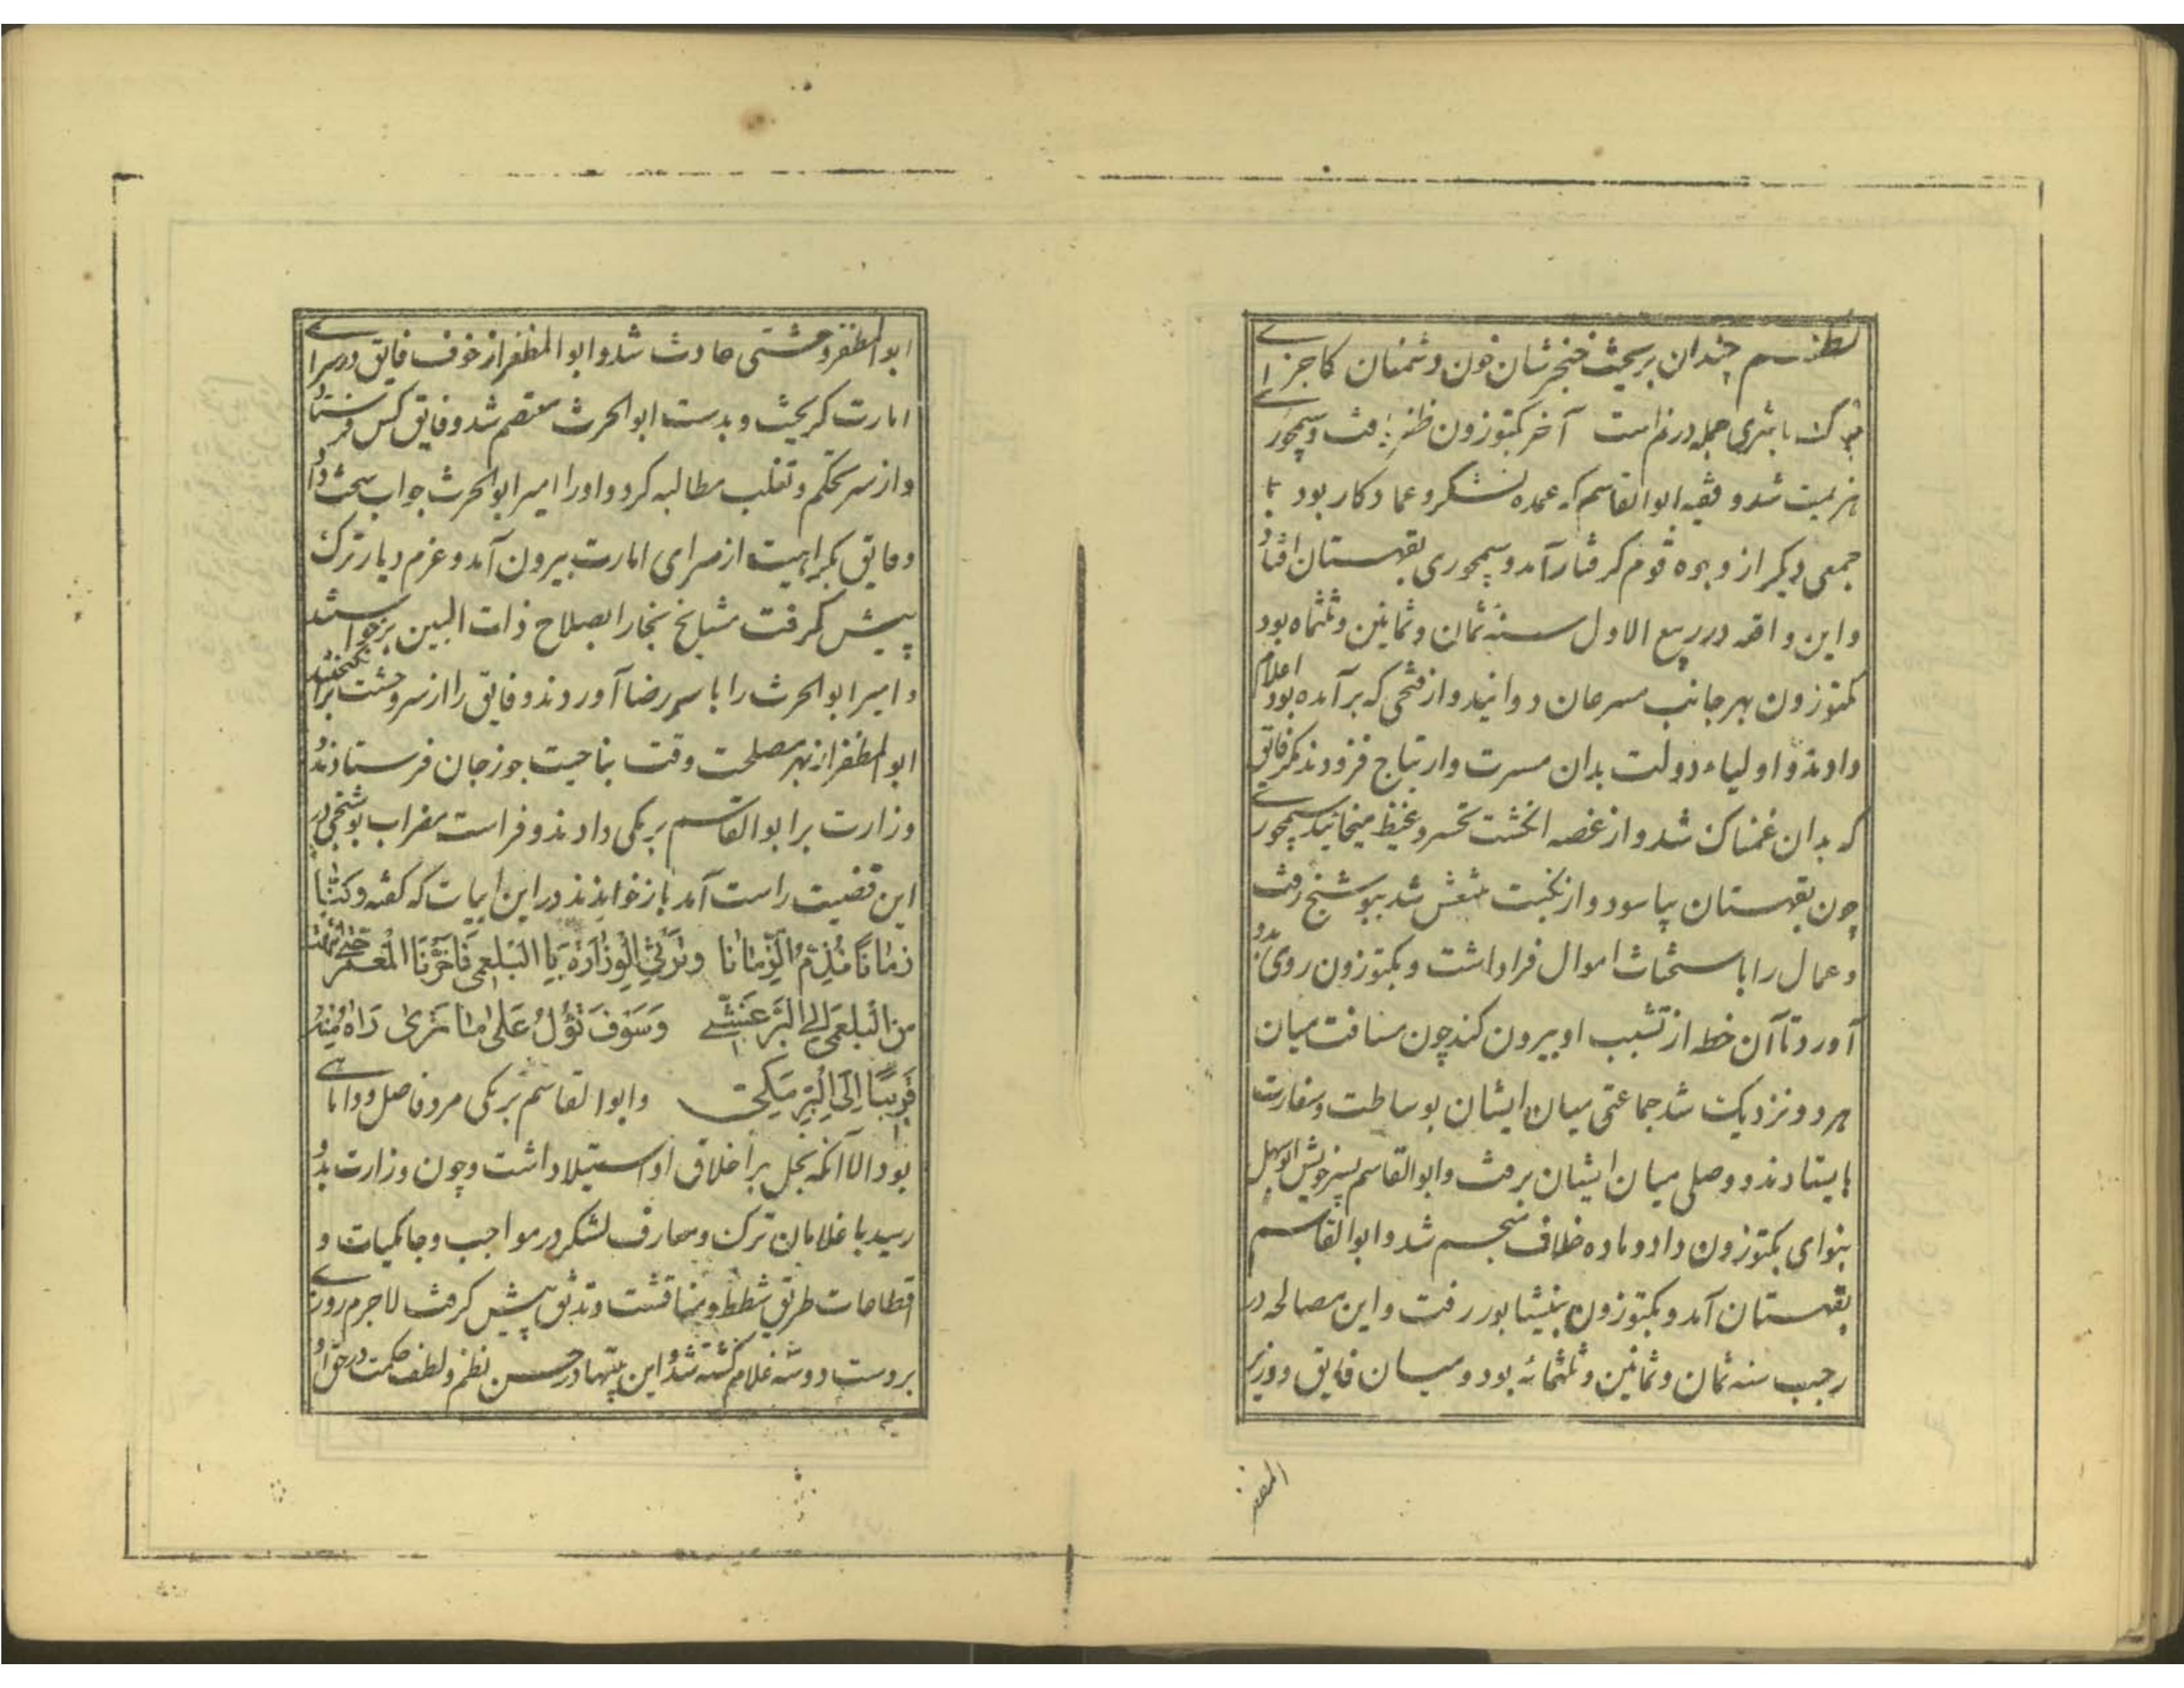 نظم چندان بریخت خنجرشان خون دشمنان کاجزای
خاک باثری جمله درنم است آخر بکتوزون ظفر یافت و سیمجوری
هزیمت شد و فقیه ابوالقاسم که عمده لشکر و عماد کار بود با
جمعی دیگر از وجوه قوم گرفتار آمد و سیمجوری بقهستان افتاد
و این واقعه در ربیع الاول سنه ثمان و ثمانین و ثلثماه بود
بکتوزون بهر جانب مسرعان دوانید و از فتحی که برآمده بود اعلام
دادند و اولیاء دولت بدان مسرت و ارتیاج فزودند مگر فایق
که بدان غمناک شد و از غصه انگشت تحسر و غیظ میخائید سیمجوری
چون بقهستان بیاسود و از نکبت منتعش شد ببوشنج رفت
و عمال را باستحثاث اموال فراداشت و بکتوزون روی بدو
آورد تا آن خطه از تشبب او بیرون کند چون مسافت میان
هر دو نزدیک شد جماعتی میان ایشان بوساطت و سفارت
بایستادند و وصلی میان ایشان برفت و ابوالقاسم پسر خویش ابوسهل
بنوای بکتوزون داد و ماده خلاف منحسم شد و ابوالقاسم
بقهستان آمد و بکتوزون بنیشابور رفت و این مصالحه در
رجب سنه ثمان و ثمانین و ثلثمائه بود و میان فایق و وزیر
ابوالمظفر وحشتی حادث شد و ابوالمظفر از خوف فایق در سرای
امارت گریخت و بدست ابوالحرث معتصم شد و فایق کس فرستاد
و از سر تحکم و تغلب مطالبه کرد و او را امیر ابوالحرث جواب سخت داد
و فایق بکراهیت از سرای امارت بیرون آمد و عزم دیار ترک
پیش گرفت مشایخ بخارا بصلاح ذات البین برخواستند
و امیر ابوالحرث را با سر رضا آوردند و فایق را از سر وحشت برانگیختند
ابوالمظفر از بهر مصلحت وقت بناحیت جوزجان فرستادند و
وزارت بر ابوالقاسم برمکی دادند و فراست مضراب بوشنجی در
این قضیت راست آمد باز خوانند در این ابیات که گفته و کنا
زمانا نذم الزمانا وترثی الوزاره یا البلعمی فاخرنا المعمر حتی نقلت
من البلعمی الی البرعشی وسوف تؤل علی ما نری راه منه
قریبا الی البرمکی و ابوالقاسم برمکی مرد فاضل و دانای
بود الا آنکه بخل بر اخلاق او استیلا داشت و چون وزارت بدو
رسید با غلامان ترک و معارف لشکر در مواجب و جامکیات و
اقطاعات طریق شطط و مناقشت و تدنق پیش گرفت لاجرم روزی
بر دست دو سه غلام کشته شد و این بیتها در حسن نظم و لطف حکمت در حق او